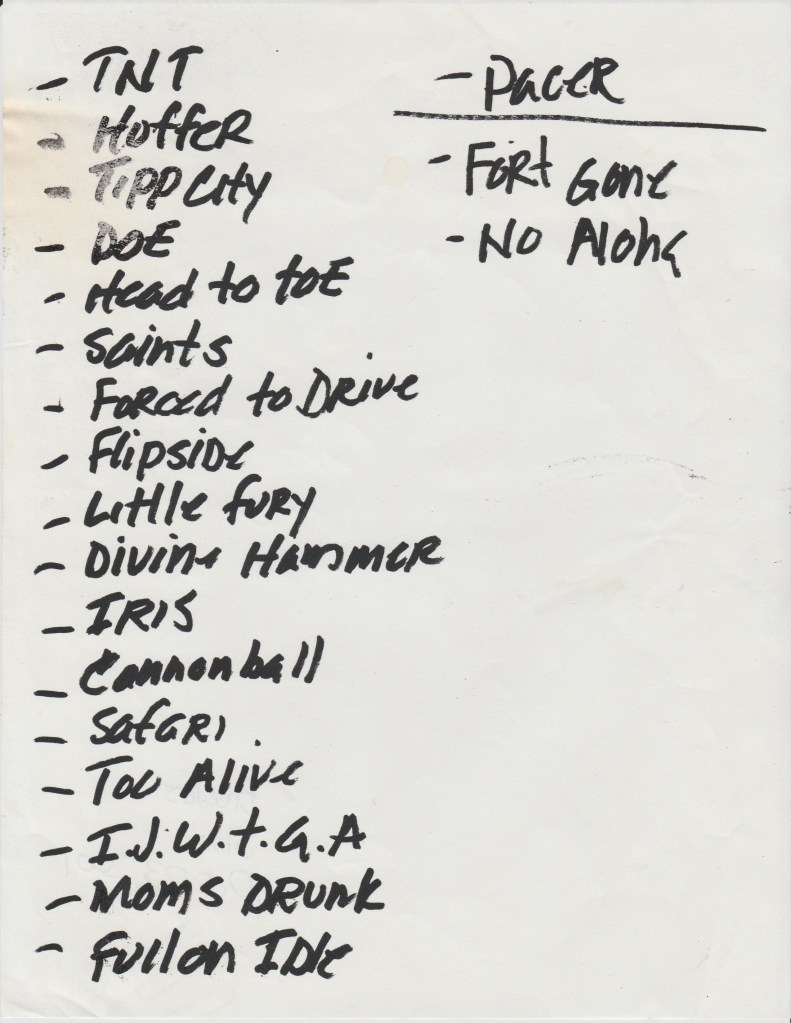 - TNT
- HoffeR
- Tipp City
- DOE
- Head to toE
- Saints
- Forced to Drive
- Flipside
- Little fury
- Divine Hammer
- IRIS
- Cannonball
- Safari
- Too Alive
- I.J.W.t.G.A
- Moms DRunk
- Full on IDle
- PaceR
- FoRt Gone
- No Aloha